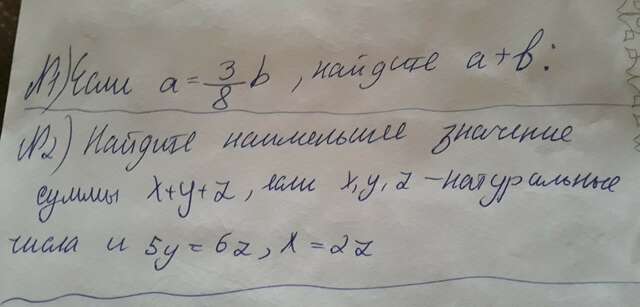 №1) Если a = 3/8 b, найдите a+b:
№2) Найдите наименьшее значение
суммы x+y+z, если x, y, z – натуральные
числа и 5y = 6z, x = 2z